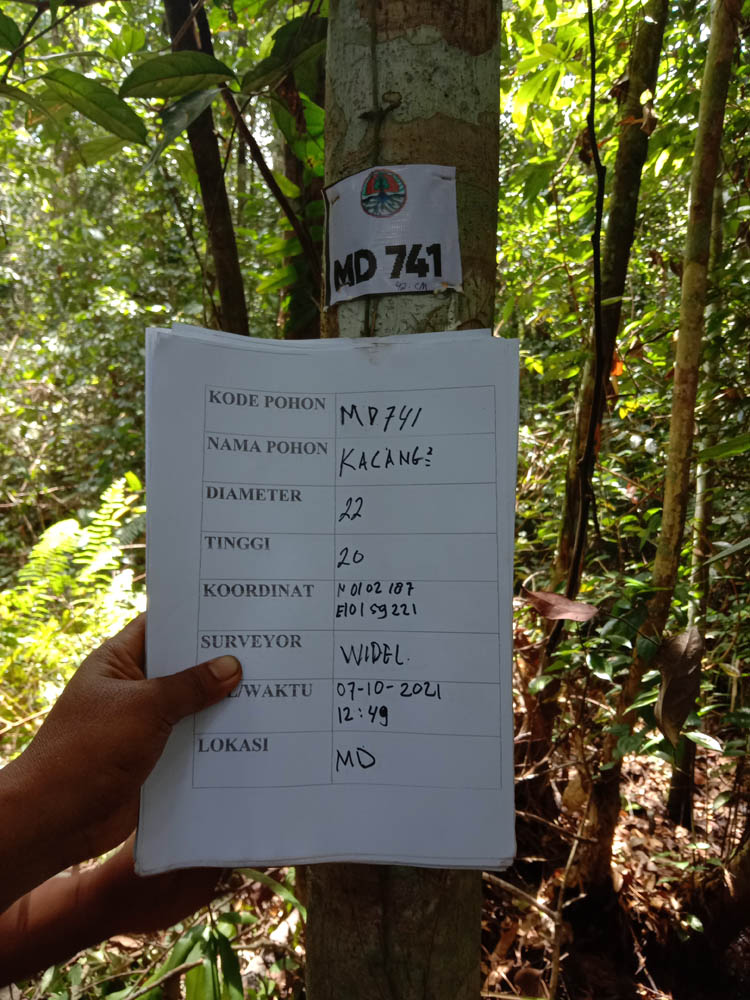 MD 741
KODE POHON MD741
NAMA POHON KACANG²
DIAMETER 22
TINGGI 20
KOORDINAT N 0102 187
E101 59221
SURVEYOR WIDEL.
/WAKTU 07-10-2021
12:49
LOKASI MD